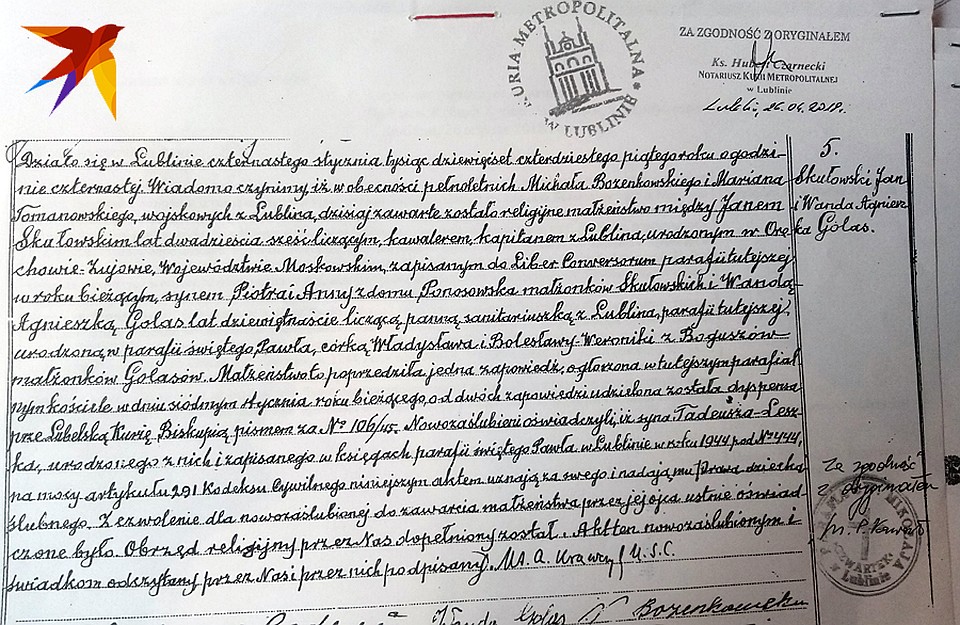 KURIA METROPOLITALNA
W LUBLINIE
ZA ZGODNOŚĆ Z ORYGINAŁEM
Ks. Hubert Czarnecki
NOTARIUSZ KURII METROPOLITALNEJ
w Lublinie
Lublin, 26.04.2018r.
Działo się w Lublinie czternastego stycznia tysiąc dziewięćset czterdziestego piątego roku o godzi-
nie czternastej. Wiadomo czynimy, iż w obecności pełnoletnich Michała Bozenkowskiego i Mariana
Tomanowskiego, wojskowych z Lublina, dzisiaj zawarte zostało religijne małżeństwo między Janem
Skułowskim lat dwadzieścia sześć liczącym, kawalerem, kapitanem z Lublina, urodzonym w Orę
chowie-Zujowie, Województwie Moskowskim, zapisanym do Liber Conversorum parafii tutejszej
w roku bieżącym, synem Piotra i Anny z domu Ponosowska małżonków Skułowskich i Wandą
Agnieszką Golas lat dziewiętnaście liczącą, panną, sanitariuszką z Lublina, parafii tutejszej,
urodzoną w parafii świętego Pawła, córką Władysława i Bolesławy-Weroniki z Boguszów
małżonków Golasów. Małżeństwo to poprzedziła jedna zapowiedź, ogłoszona w tutejszym parafial
nym kościele w dniu siódmym stycznia roku bieżącego, od dwóch zapowiedzi udzielona została dyspensa
prze Lubelską Kurię Biskupią pismem za Nº 106/45. Nowozaślubieni oświadczyli, iż syna Tadeusza-Lesz
ka, urodzonego z nich i zapisanego w księgach parafii świętego Pawła w Lublinie w roku 1944 pod Nº 444,
na mocy artykułu 291 Kodeksu Cywilnego niniejszym aktem uznają za swego i nadają mu prawa dziecka
ślubnego. Zezwolenie dla nowozaślubionej do zawarcia małżeństwa przez jej ojca ustnie oświad
czone było. Obrzęd religijny przez Nas dopełniony został. Akt ten nowozaślubionym i
świadkom odczytany przez Nas i przez nich podpisany.
U.S.C.
Wanda Golas
Bozenkowski
5.
Skułowski Jan
i Wanda Agniesz
ka Golas.
Za zgodność
z oryginałem
CZWARTEK
w Lublinie